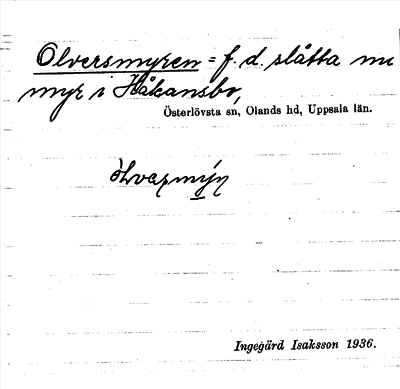 Olversmyren = f. d. slåtta nu
myr i Håkansbo,
Österlövsta sn, Olands hd, Uppsala län.
Ingegärd Isaksson 1936.